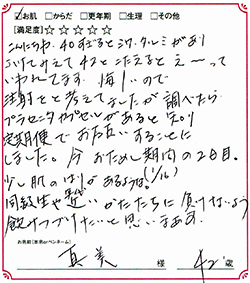 ☑お肌 □からだ □更年期 □生理 □その他
[満足度] ☆☆☆☆☆
こんにちわ。40すぎるとシワ・タルミがあり
ふけてみえて42とこたえるとえ〜って
いわれてます。悔しいので
注射とと考えてましたが調べたら
プラセンタやざいがあると知り
定期便でお願いすることに
しました。今おためし期間の2日目。
少し肌のはりがあるような。(1/16)
同級生や近いかたたちに負けないよう
飲みつづけたいと思いまぁす。
お名前(本名orペンネーム)
真美 様 42歳